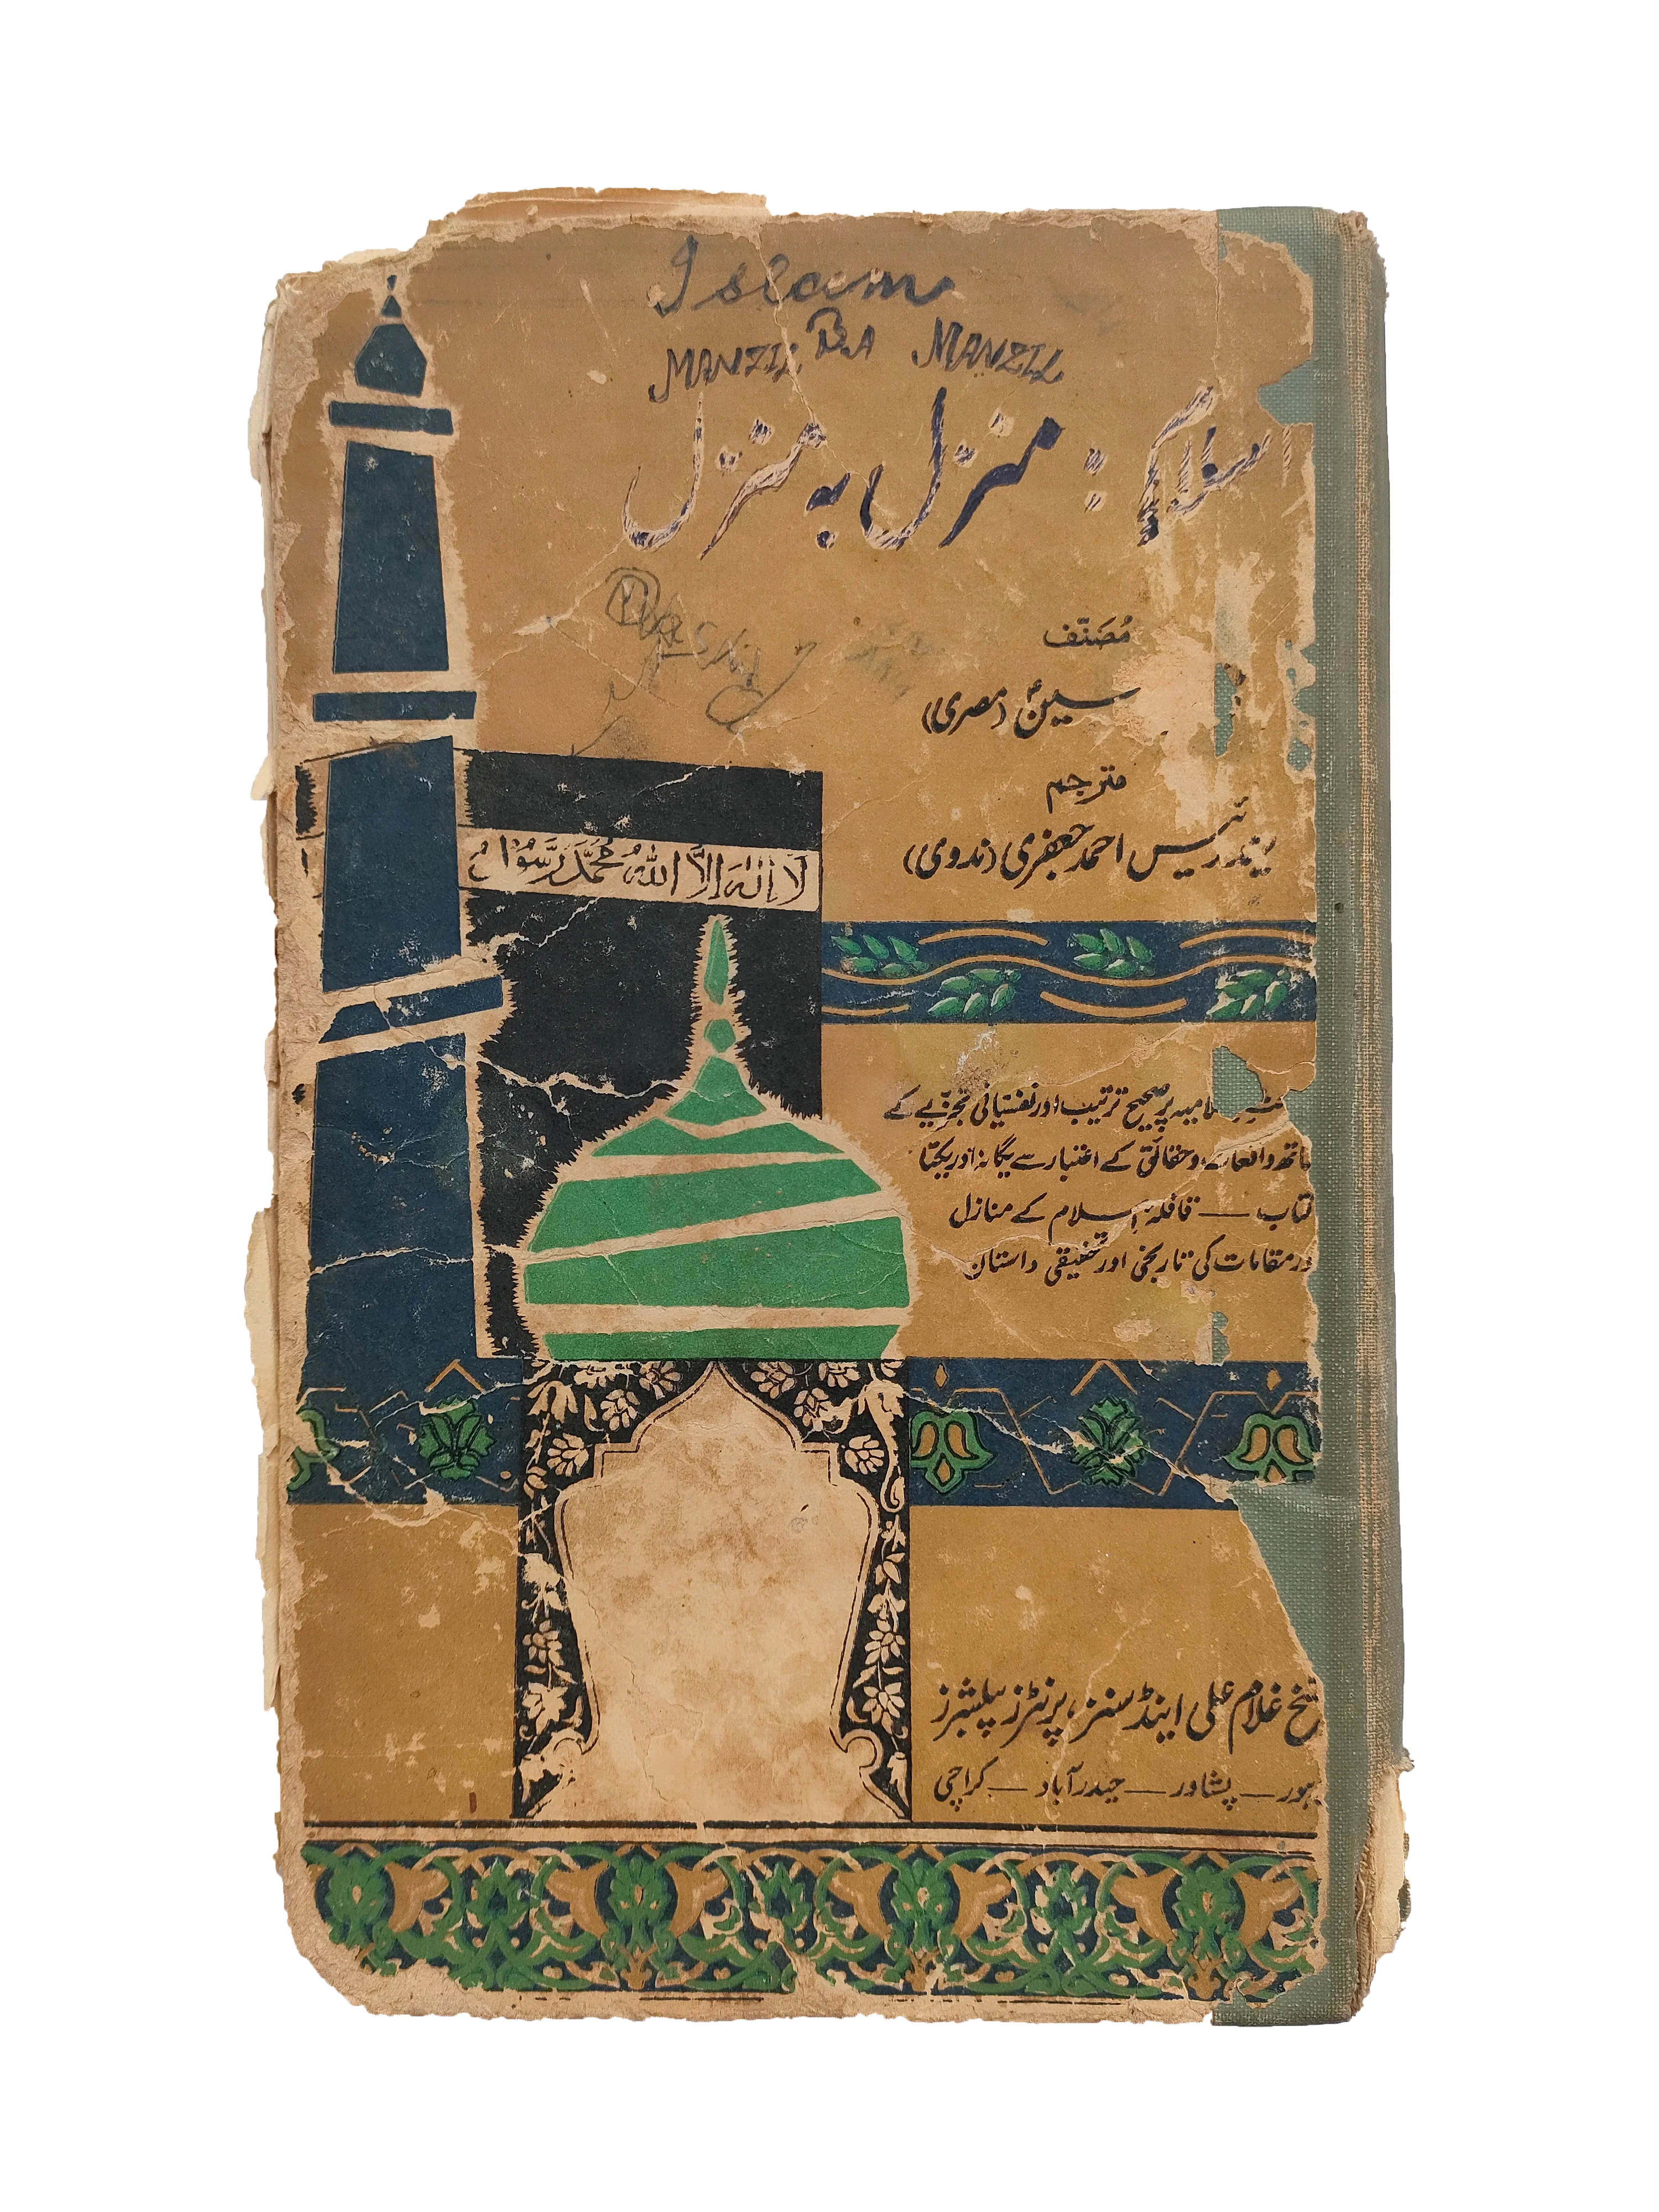 Islam
MANZIL BA MANZIL
اسلام : منزل بہ منزل
مُصَنّف
(مصری)
مترجم
رئیس احمد جعفری (ندوی)
لا إله إلا الله محمد رسول
پر صحیح ترتیب اور نفسیاتی تجزیے کے
واقعات و حقائق کے اعتبار سے یگانہ اور یکتا
تاب — قافلۂ اسلام کے منازل
ور مقامات کی تاریخی اور تحقیقی داستان
یخ غلام علی اینڈ سنز، پرنٹرز پبلشرز
ہور — پشاور — حیدرآباد — کراچی